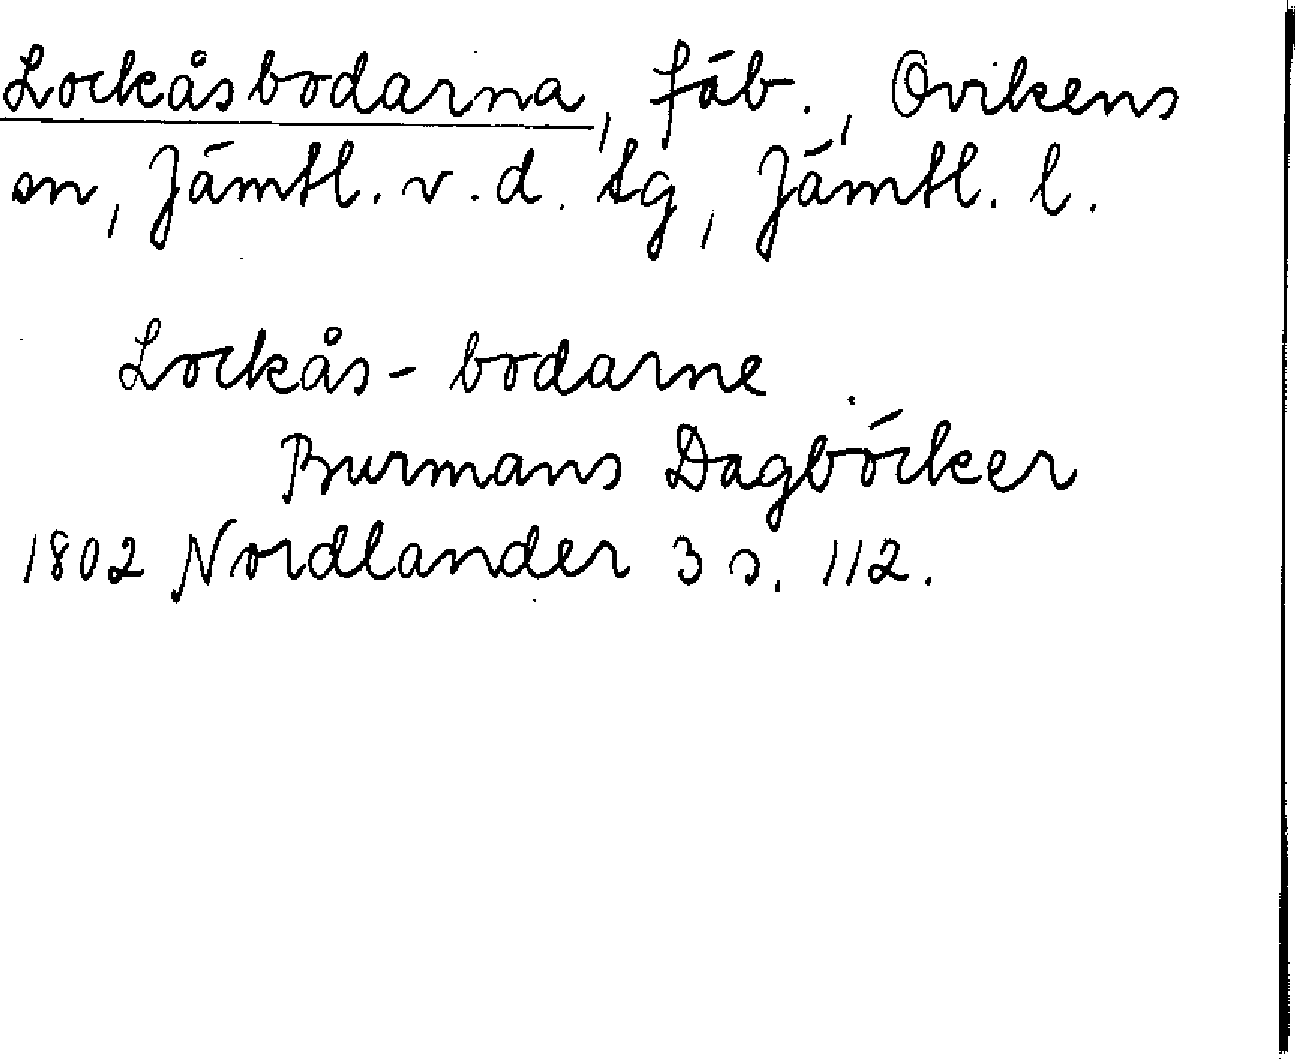 Lockåsbodarna, fäb., Ovikens
sn, Jämtl. v. d. tg, Jämtl. l.
Lockås-bodarne
Burmans Dagböcker
1802 Nordlander 3 s. 112.